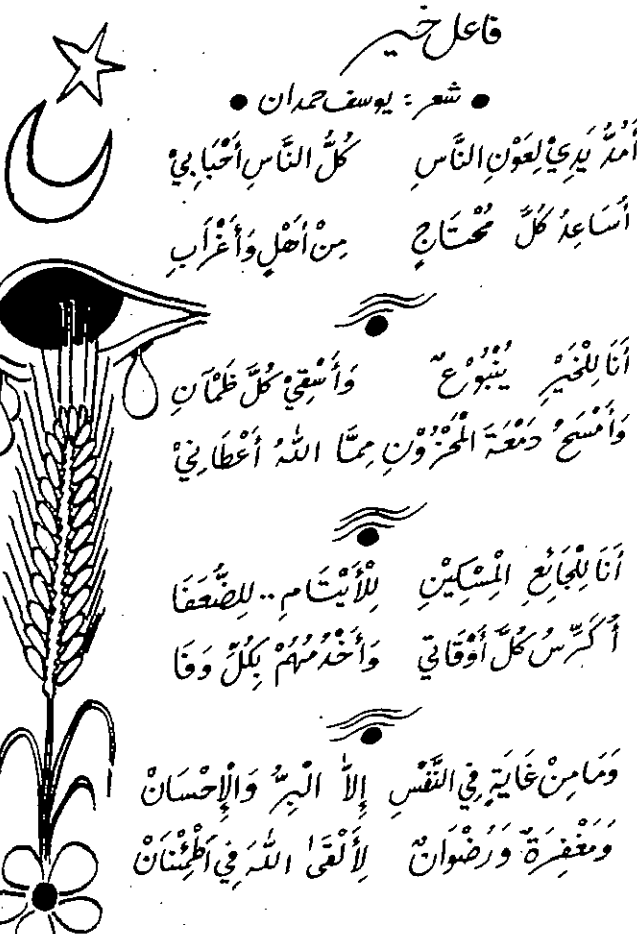 فاعل خير
● شعر : يوسف حمدان ●
أَمُدُّ يَدِيْ لِعَوْنِ النَّاسِ كُلُّ النَّاسِ أَحْبَابِيْ
أُسَاعِدُ كُلَّ مُحْتَاجٍ مِنْ أَهْلٍ وَأَغْرَابِ
أَنَا لِلْخَيْرِ يُنْبُوْعٌ وَأَسْقِيْ كُلَّ ظَمْآنِ
وَأَمْسَحُ دَمْعَةَ الْمَحْزُوْنِ مِمَّا اللهُ أَعْطَانِيْ
أَنَا لِلْجَائِعِ الْمِسْكِيْنِ لِلْأَيْتَامِ .. لِلضُّعَفَا
أُكَرِّسُ كُلَّ أَوْقَاتِي وَأَخْدُمُهُمْ بِكُلِّ وَفَا
وَمَا مِنْ غَايَةٍ فِي النَّفْسِ إِلاَّ الْبِرُّ وَالْإِحْسَانْ
وَمَغْفِرَةٌ وَرُضْوَانٌ لِأَلْقَىٰ اللهَ فِي اَطْمِئْنَانْ